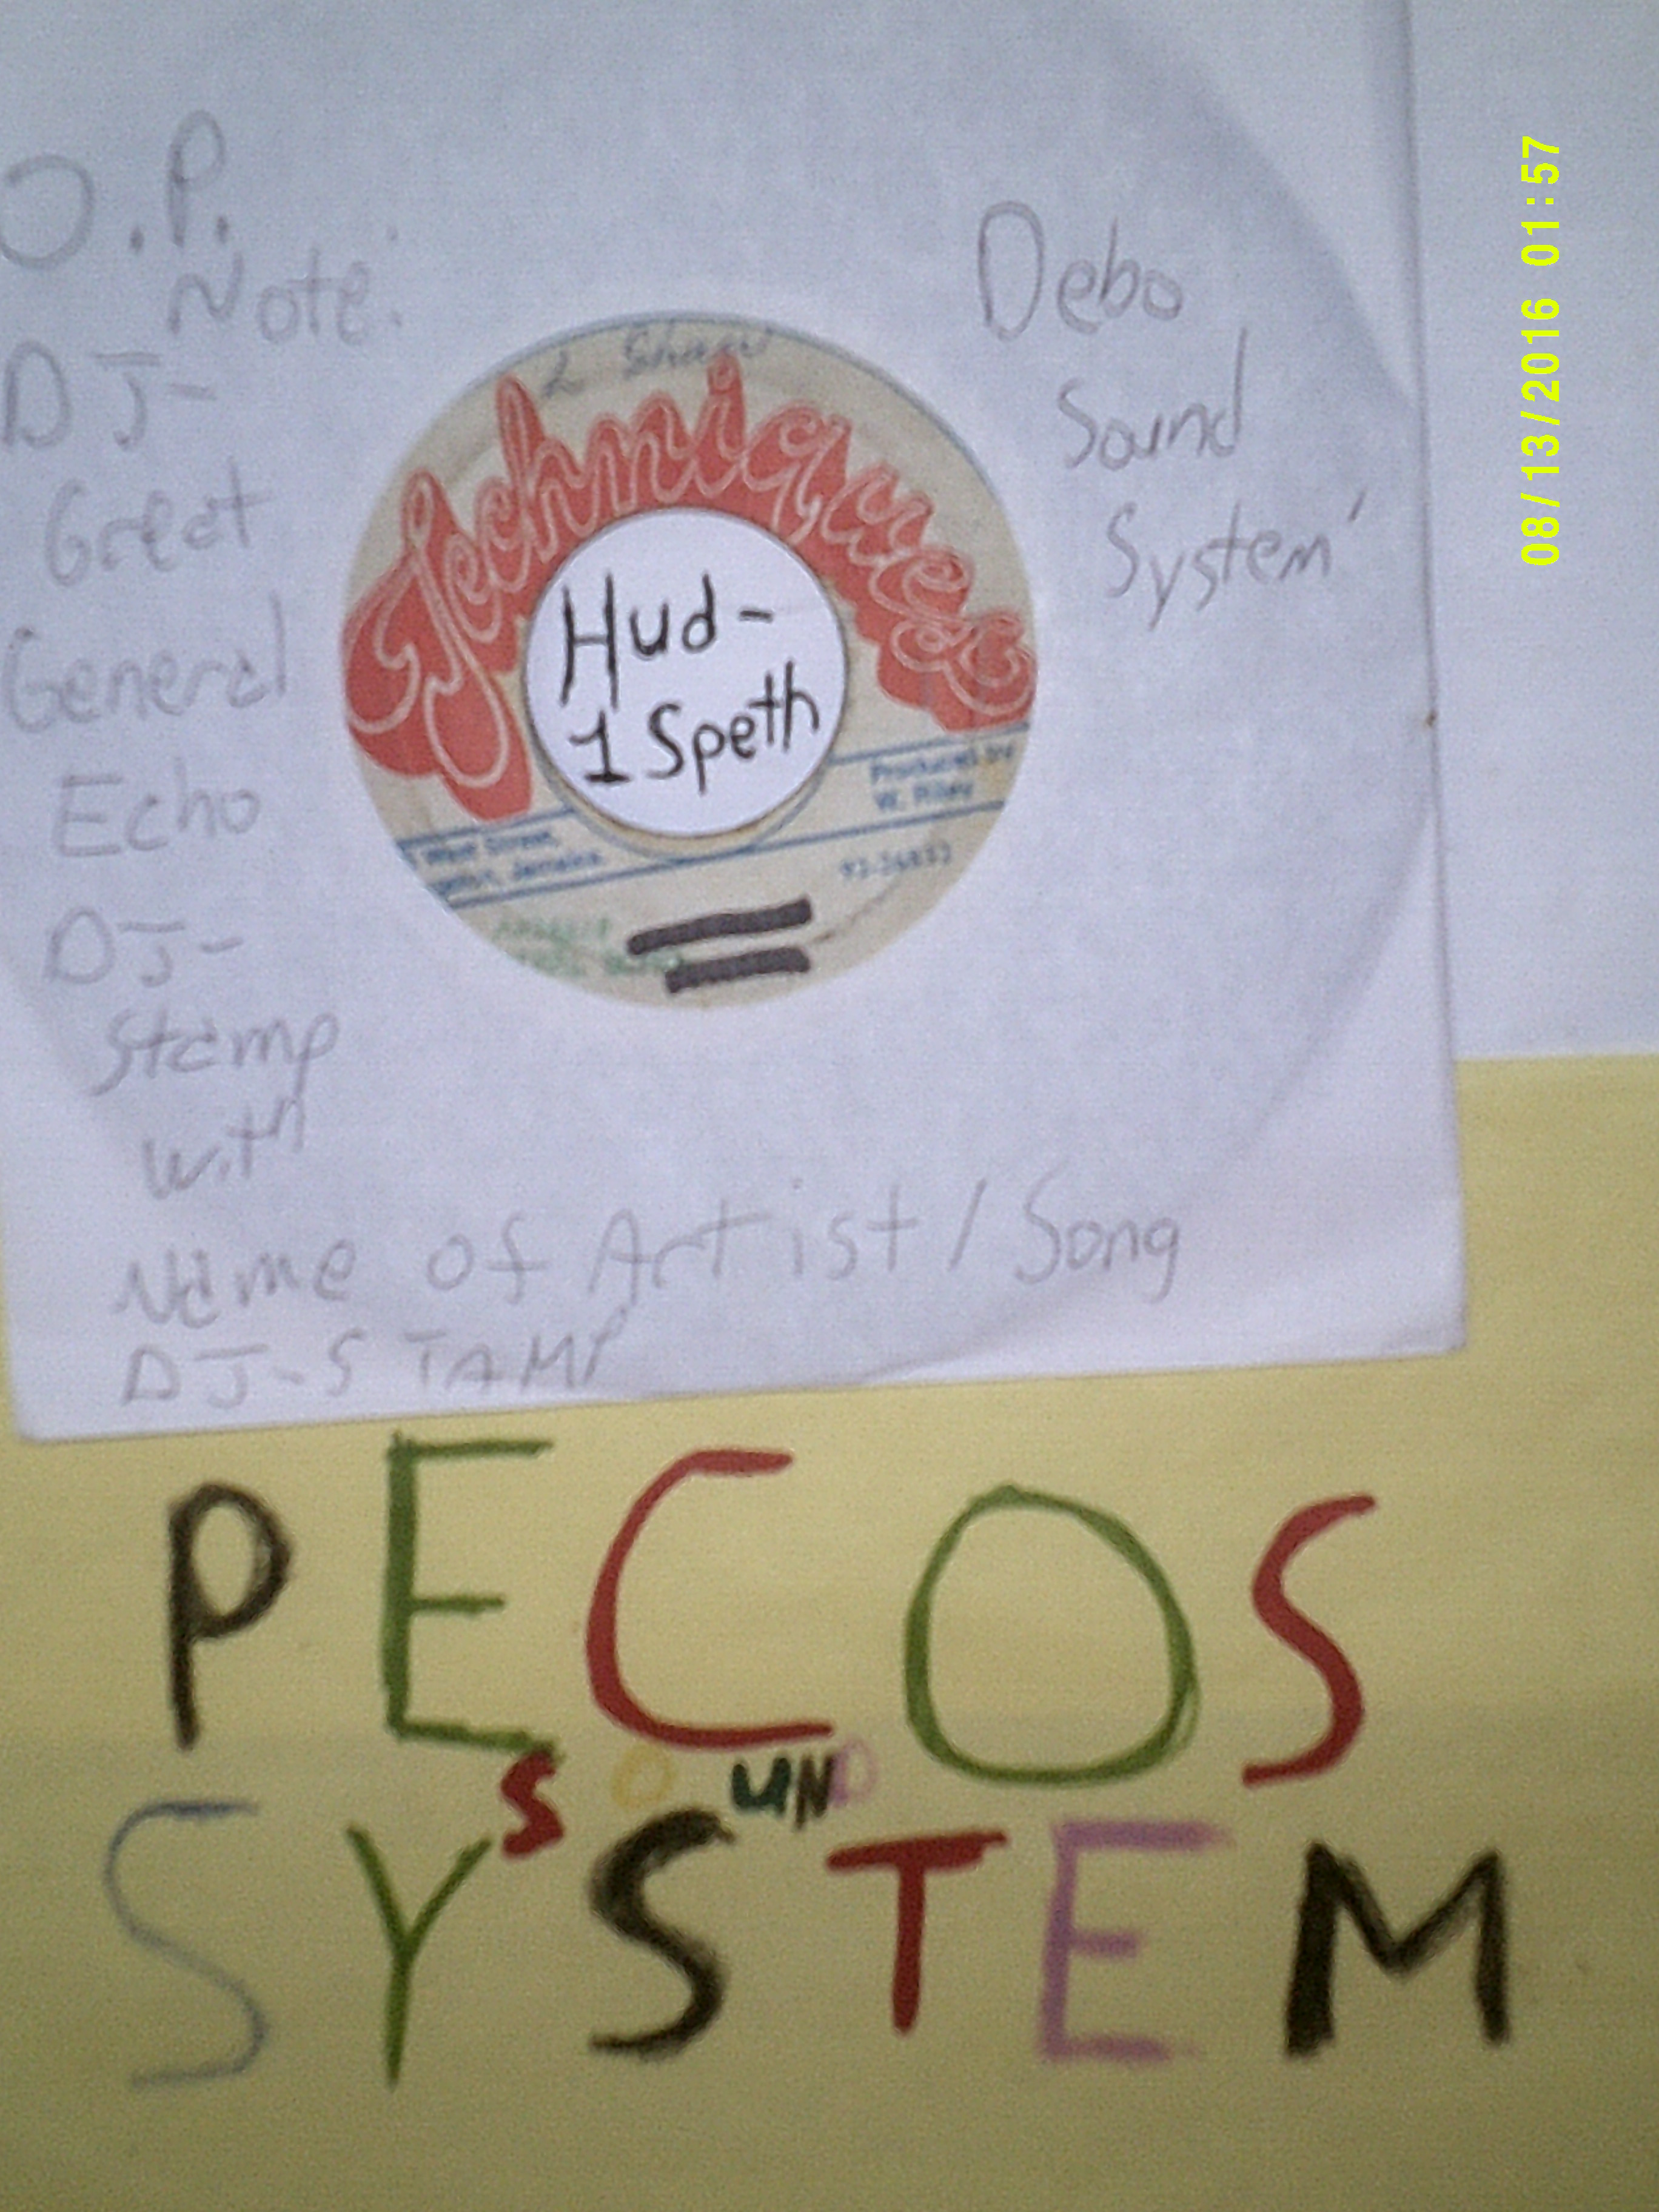 O.P.
Note:
DJ-
Great
General
Echo
DJ-
Stamp
with
Name of Artist / Song
DJ-STAMP
Debo
Sound
System'
Techniques
Hud-
1 Speth
Produced by
W. Riley
Street,
Jamaica.
PECOS
SOUND
SYSTEM
08/13/2016 01:57